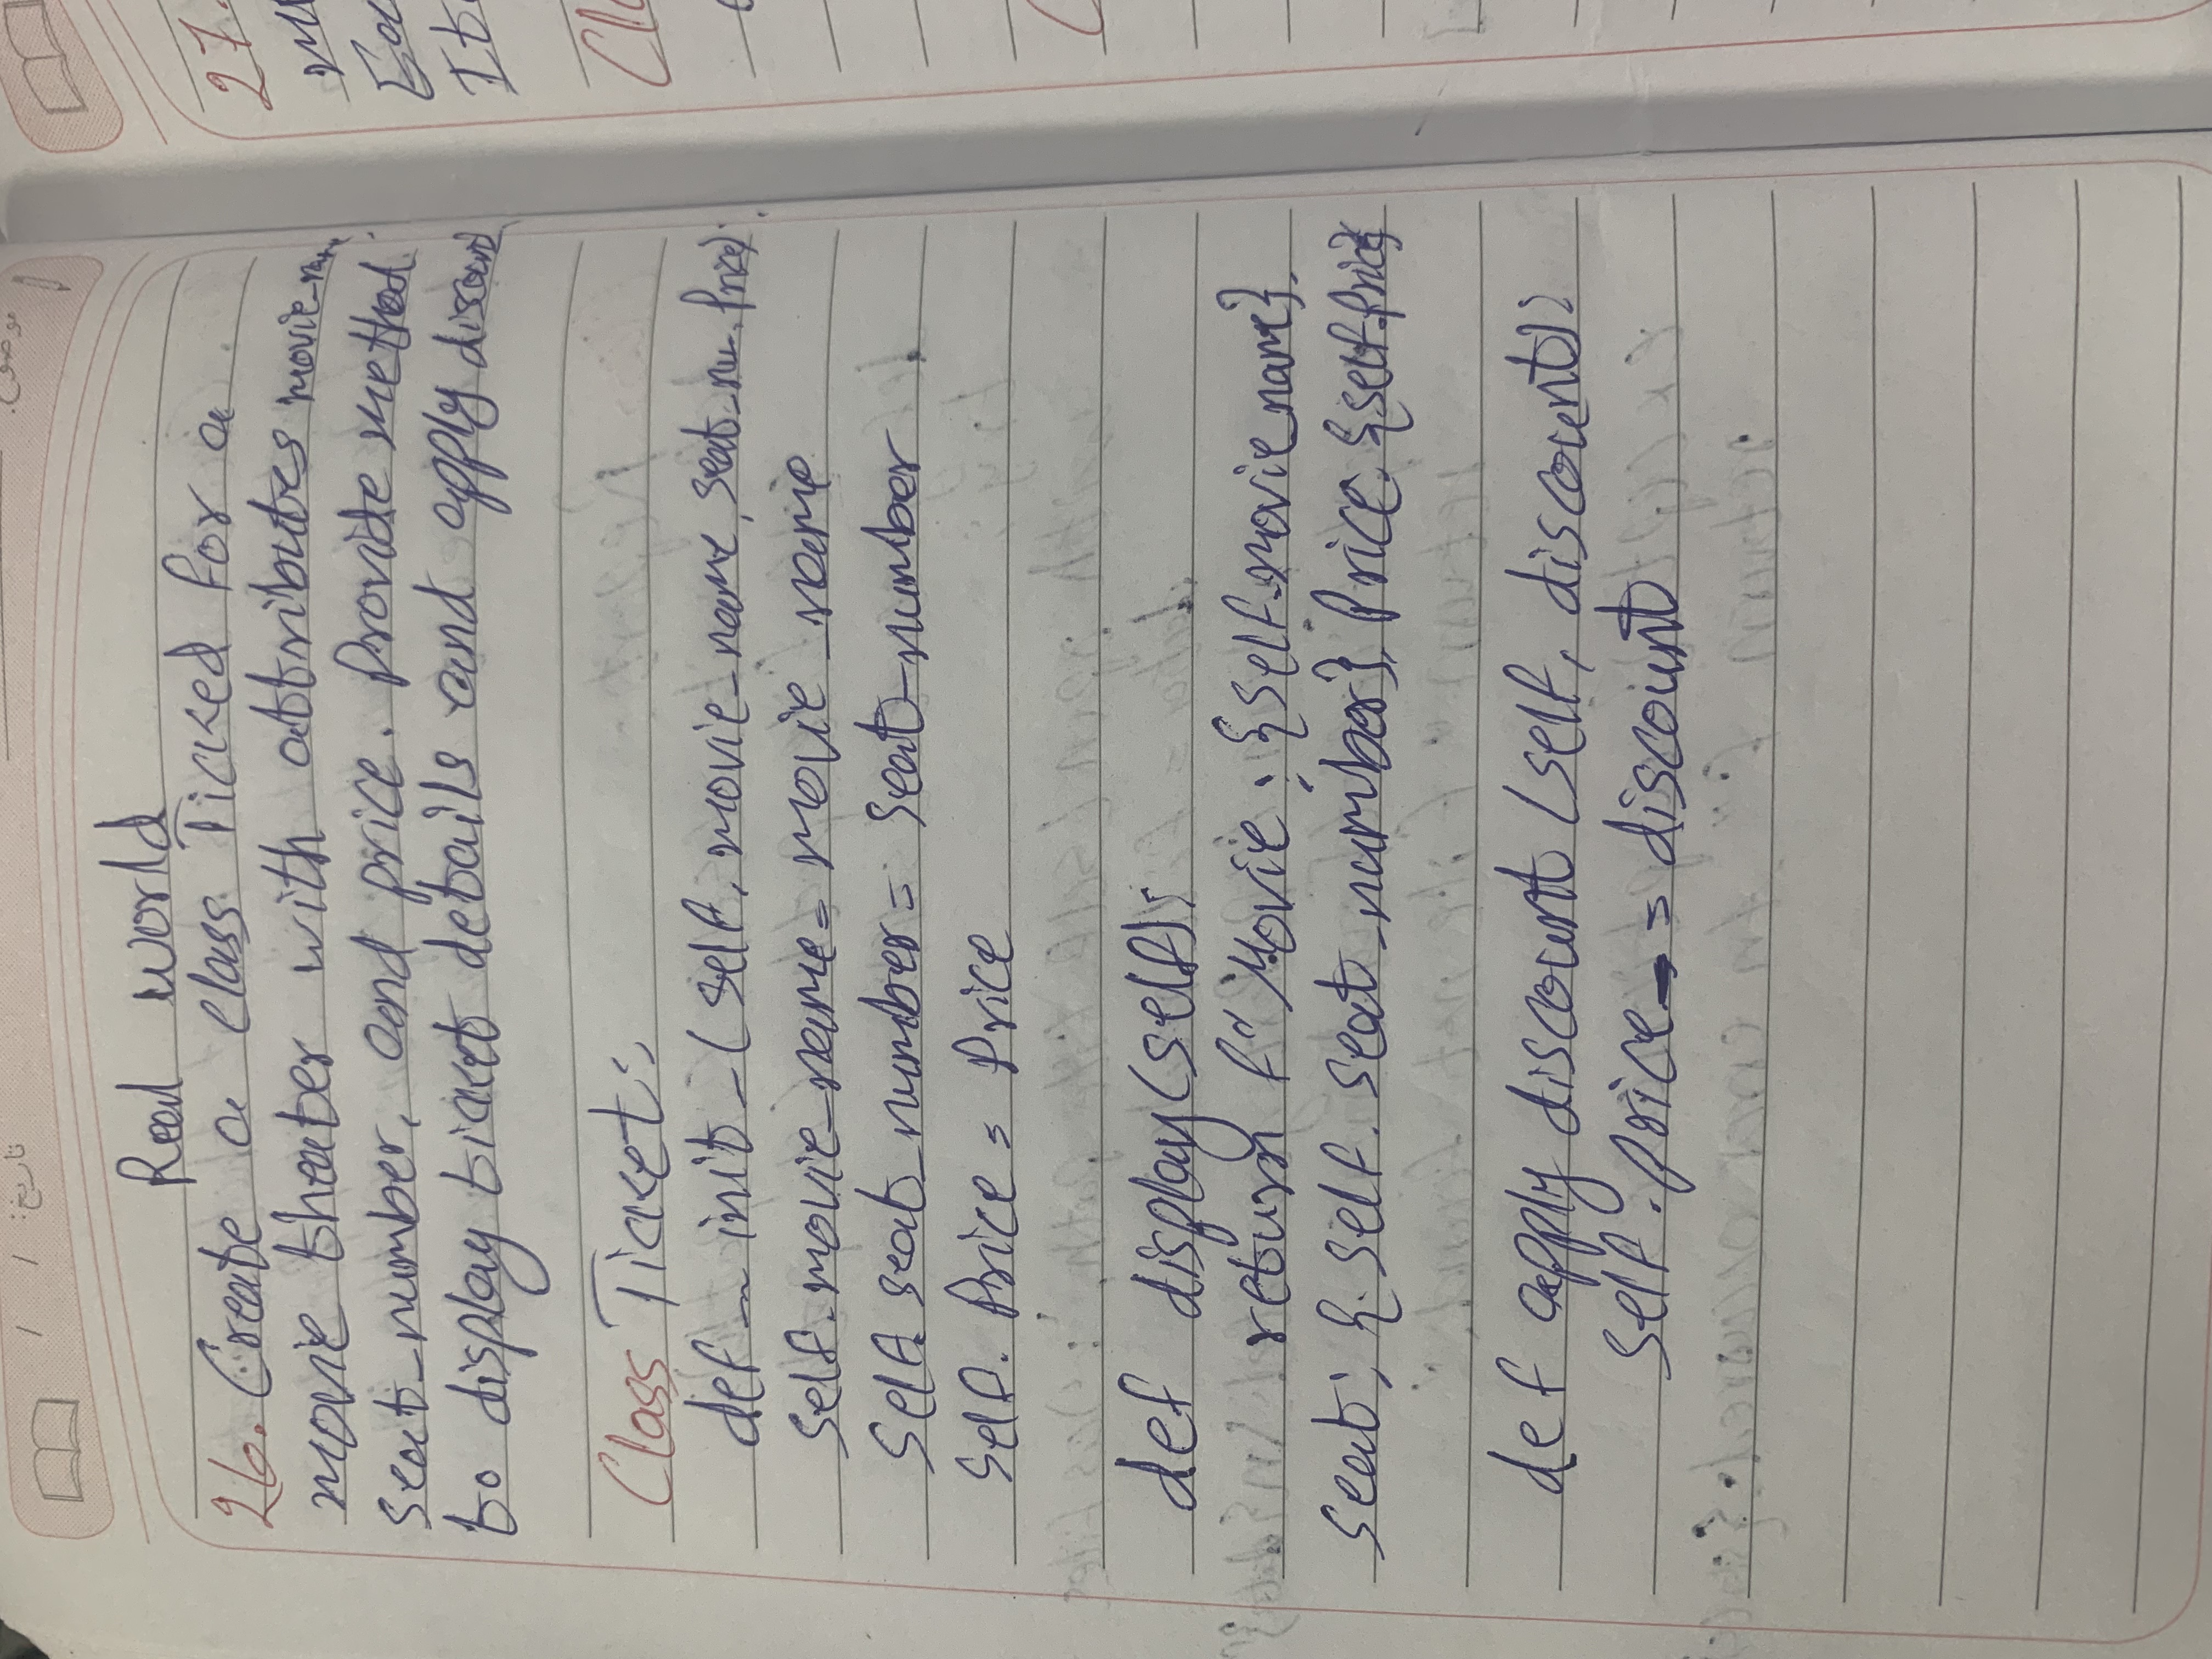 تاريخ: / /
موضوع:
Real world
26. Create a class Ticked for a
movie theater with attributes movie_name
seat_number, and price. Provide method
to display ticket details and apply discount
Class Ticket:
def __init_(self, movie_name, seat_nu, Price):
self.movie_name = movie_name
self.seat_number = seat_number
self.Price = Price
def display(self):
return f"Movie: {self.movie_name}.
seat: {self.seat_number}, Price: {self.Price}
def apply discount (self, discount):
self.price -= discount
27.